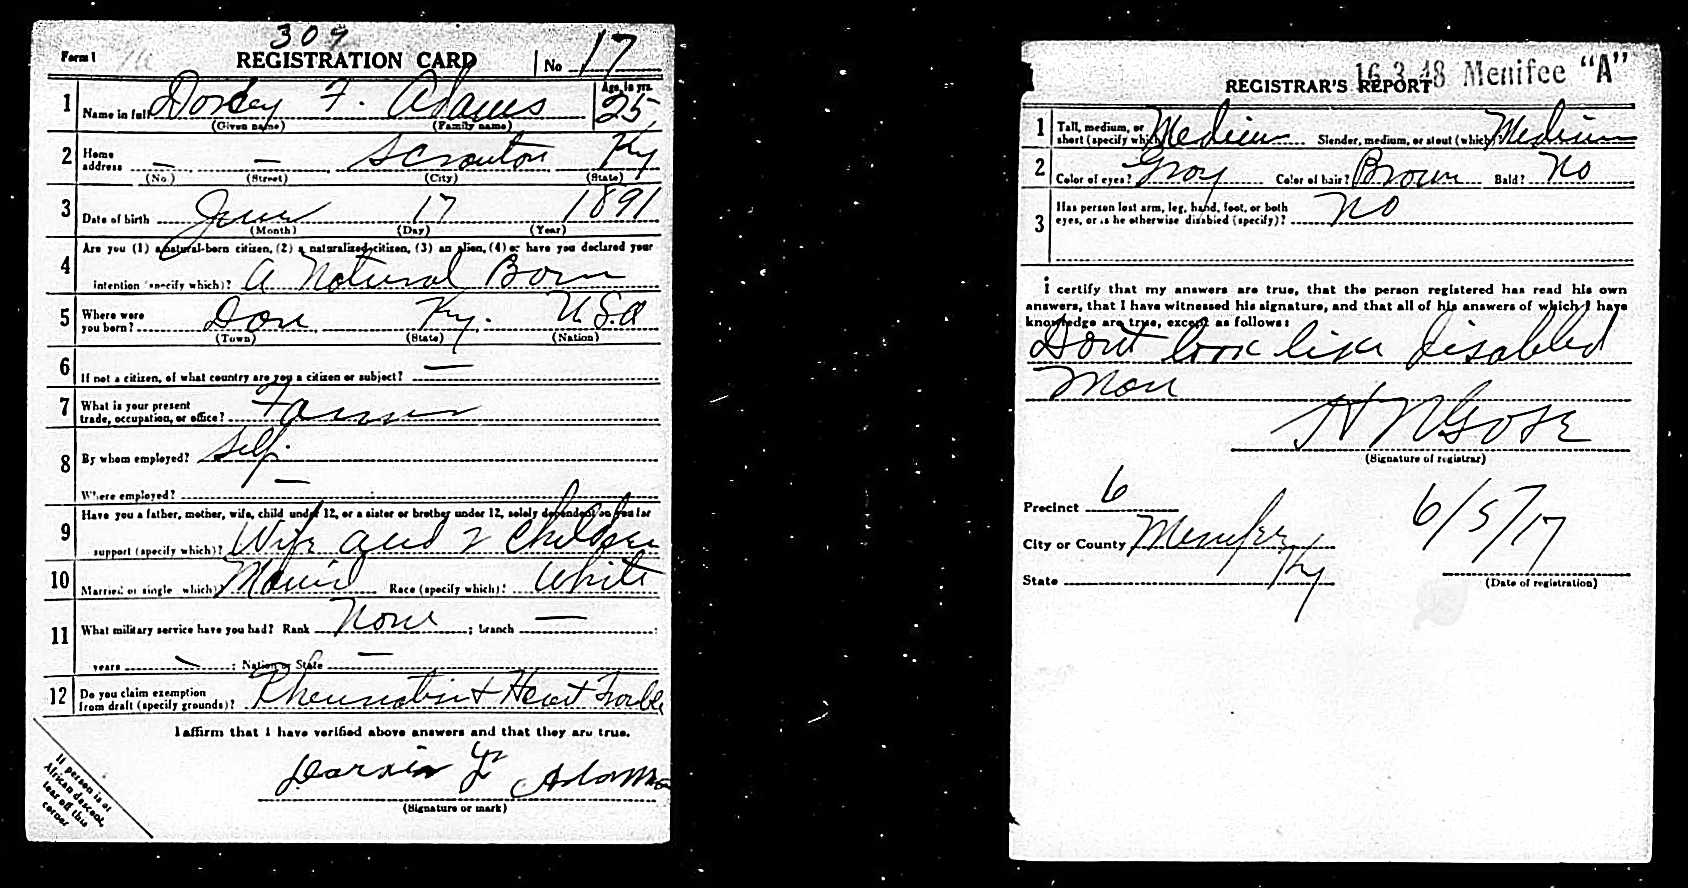 309
Form 1 REGISTRATION CARD No 17
1 Name in full Dorsey F. Adams Age, in yrs. 25
(Given name) (Family name)
2 Home address — — Scranton Ky
(No.) (Street) (City) (State)
3 Date of birth June 17 1891
(Month) (Day) (Year)
4 Are you (1) a natural-born citizen, (2) a naturalized citizen, (3) an alien, (4) or have you declared your
intention (specify which)? A Natural Born
5 Where were you born? Dan Ky. U.S.A
(Town) (State) (Nation)
6 If not a citizen, of what country are you a citizen or subject? —
7 What is your present trade, occupation, or office? Farmer
8 By whom employed? Self.
Where employed? —
9 Have you a father, mother, wife, child under 12, or a sister or brother under 12, solely dependent on you for
support (specify which)? Wife and 2 Children
10 Married or single (which)? Married Race (specify which)? White
11 What military service have you had? Rank None ; branch — ;
years — ; Nation or State —
12 Do you claim exemption from draft (specify grounds)? Rheumatism & Heart Trouble
I affirm that I have verified above answers and that they are true.
F Adams
(Signature or mark)
If person is of
African descent,
tear off this
corner
16 3 48 Menifee "A"
REGISTRAR'S REPORT
1 Tall, medium, or short (specify which)? Medium Slender, medium, or stout (which)? Medium
2 Color of eyes? Gray Color of hair? Brown Bald? No
3 Has person lost arm, leg, hand, foot, or both eyes, or is he otherwise disabled (specify)? No
I certify that my answers are true, that the person registered has read his own
answers, that I have witnessed his signature, and that all of his answers of which I have
knowledge are true, except as follows:
Dont look like disabled
Man
H N Gose
(Signature of registrar)
Precinct 6
City or County Menifee
State Ky
6/5/17
(Date of registration)